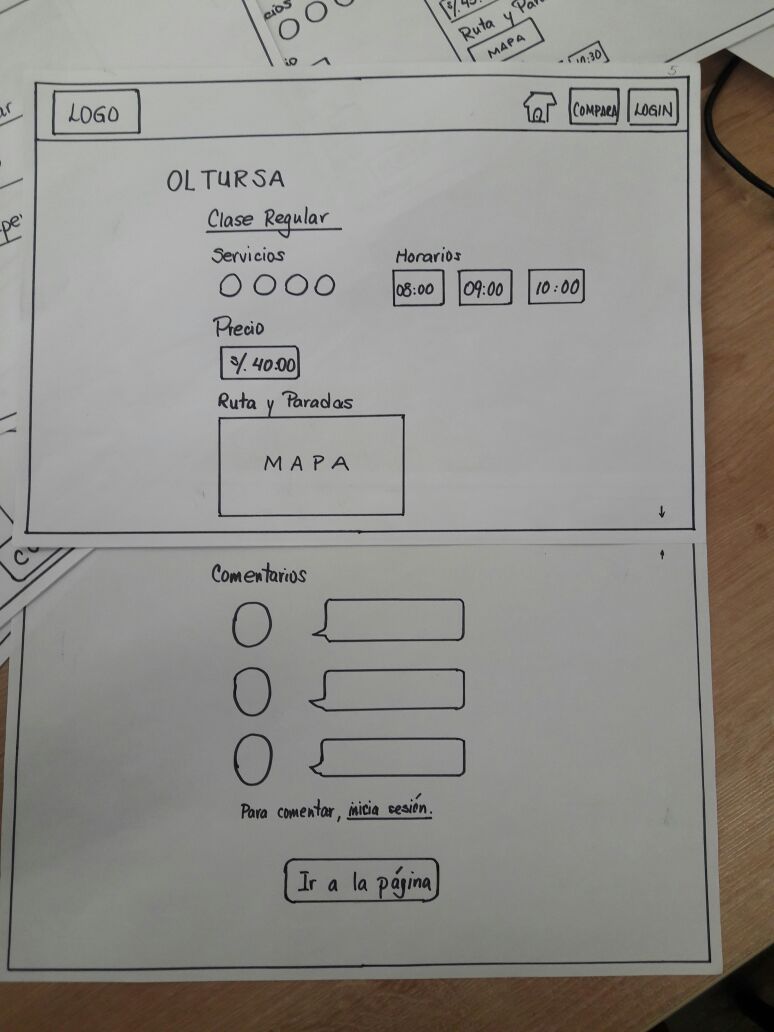 S/.
Ruta y
MAPA
10:30
5
LOGO
COMPARA
LOGIN
OLTURSA
Clase Regular
Servicios
Horarios
08:00
09:00
10:00
Precio
S/. 40.00
Ruta y Paradas
MAPA
Comentarios
Para comentar, inicia sesión.
Ir a la página